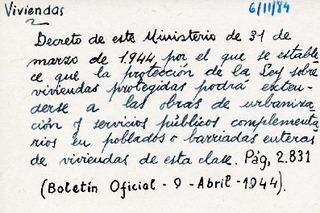 Viviendas
6/11/84
Decreto de este Ministerio de 31 de
marzo de 1.944 por el que se estable
ce que la protección de la Ley sobre
viviendas protegidas podrá exten-
derse a las obras de urbaniza
ción y servicios públicos complementa
rios en poblados o barriadas enteras
de viviendas de esta clase. Pág, 2.831
(Boletín Oficial - 9 - Abril - 1944).